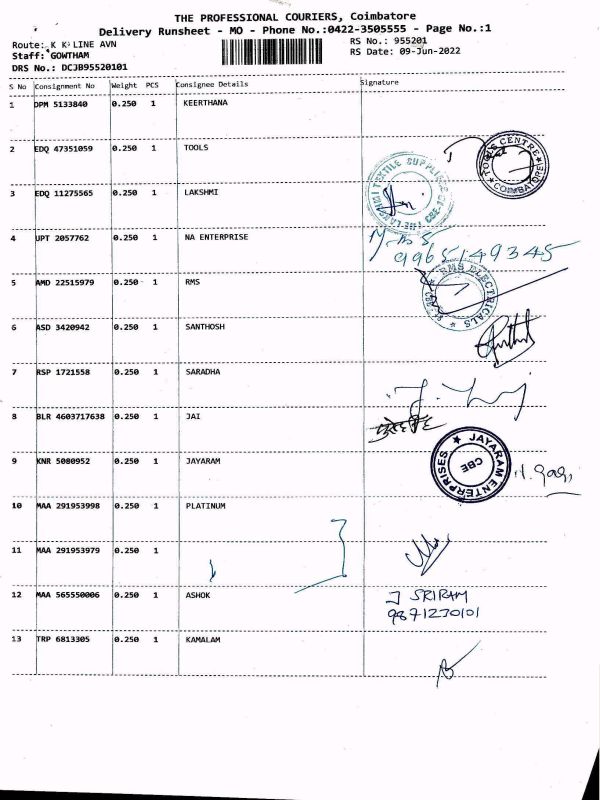 THE PROFESSIONAL COURIERS, Coimbatore
Delivery Runsheet - MO - Phone No.:0422-3505555 - Page No.:1
Route: K K LINE AVN
RS No.: 955201
Staff: GOWTHAM
RS Date: 09-Jun-2022
DRS No.: DCJB95520101
S No Consignment No Weight PCS Consignee Details Signature
1 DPM 5133840 0.250 1 KEERTHANA
2 EDQ 47351059 0.250 1 TOOLS
TOOLS CENTRE COIMBATORE
3 EDQ 11275565 0.250 1 LAKSHMI
TEXTILE
4 UPT 2057762 0.250 1 NA ENTERPRISE
9965149345
5 AMD 22515979 0.250 1 RMS
RMS ELECTRICALS
6 ASD 3420942 0.250 1 SANTHOSH
7 RSP 1721558 0.250 1 SARADHA
8 BLR 4603717638 0.250 1 JAI
9 KNR 5080952 0.250 1 JAYARAM
JAYARAM ENTERPRISES CBE
10 MAA 291953998 0.250 1 PLATINUM
11 MAA 291953979 0.250 1
12 MAA 565550006 0.250 1 ASHOK
J SRIRAM
9871230101
13 TRP 6813305 0.250 1 KAMALAM